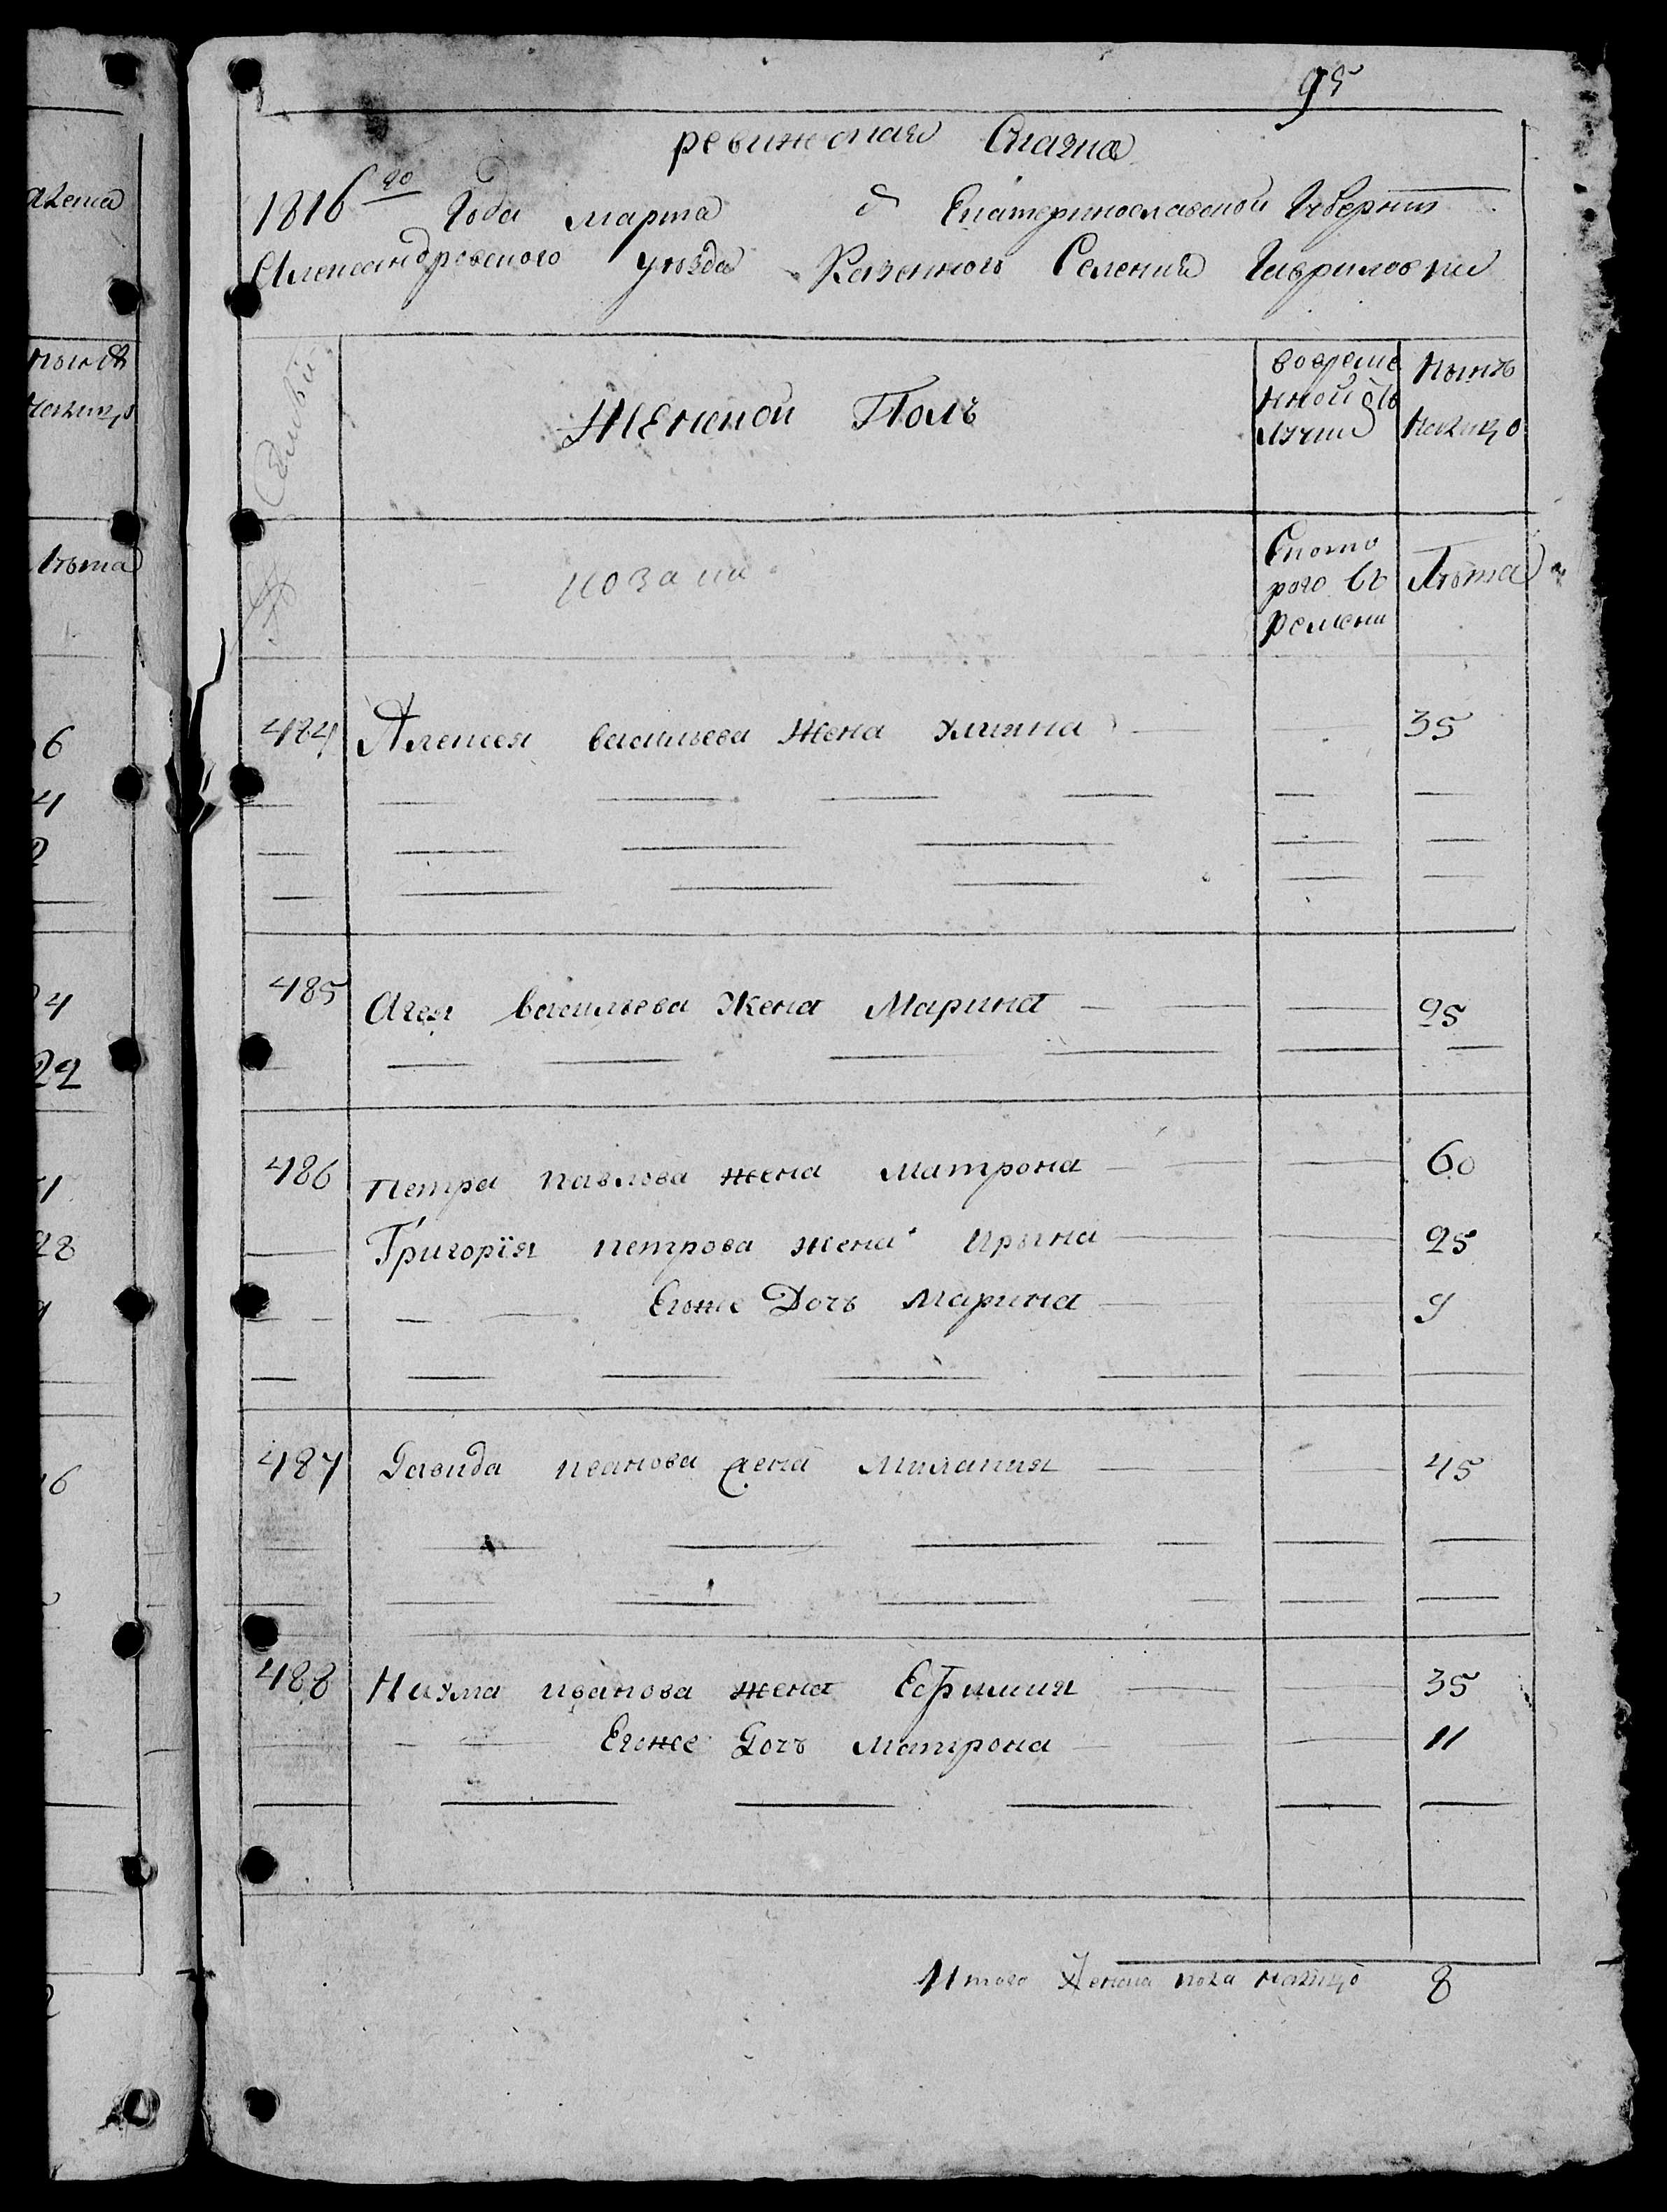 95
ревижская Сказка
1816го Года марта 8 Екатеринославской Губернии
Александровского уезда Казенного Селения Гавриловки
Семьи
Женской Полъ
вовреме
нной отъ
лучки
Нынѣ
налицо
№
козаки
Ското
рого въ
ремени
Лѣта
484 Алексея васильева Жена Улияна 35
485 Агея васильева Жена Марина 25
486 Петра павлова жена Матрона 60
Григорїя петрова жена Ирына 25
Егоже Дочъ Марина 9
487 Давида иванова жена Милания 45
488 Наума иванова жена Ефимия 35
Егоже Дочъ Матрона 11
Итого Женска пола налицо 8